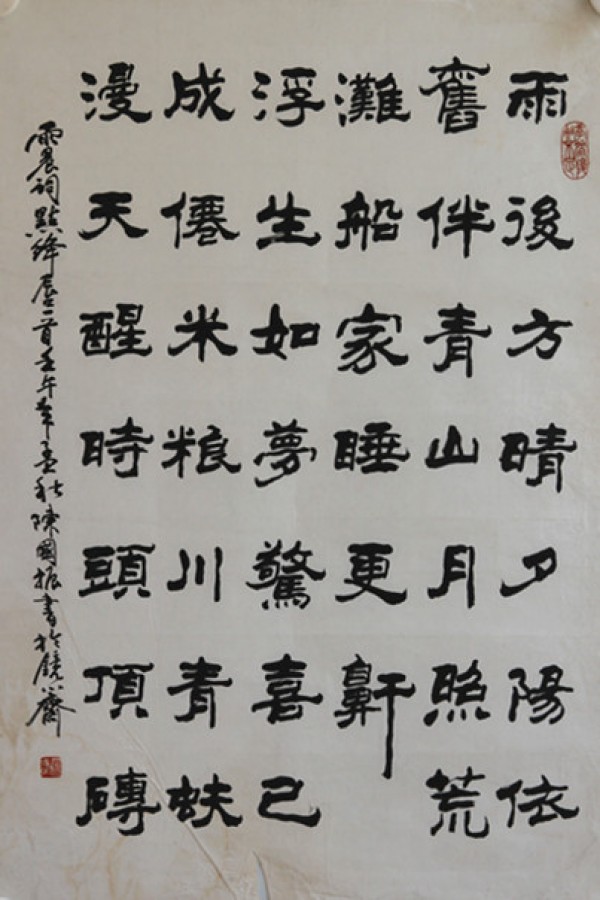 雨後方晴夕陽依
舊伴青山月照荒
灘船家睡更鼾
浮生如夢驚喜己
成僊米粮川青蚨
漫天醒時頭頂磚
雨晨詞點絳唇一首壬午年孟秋陳國振書於齋